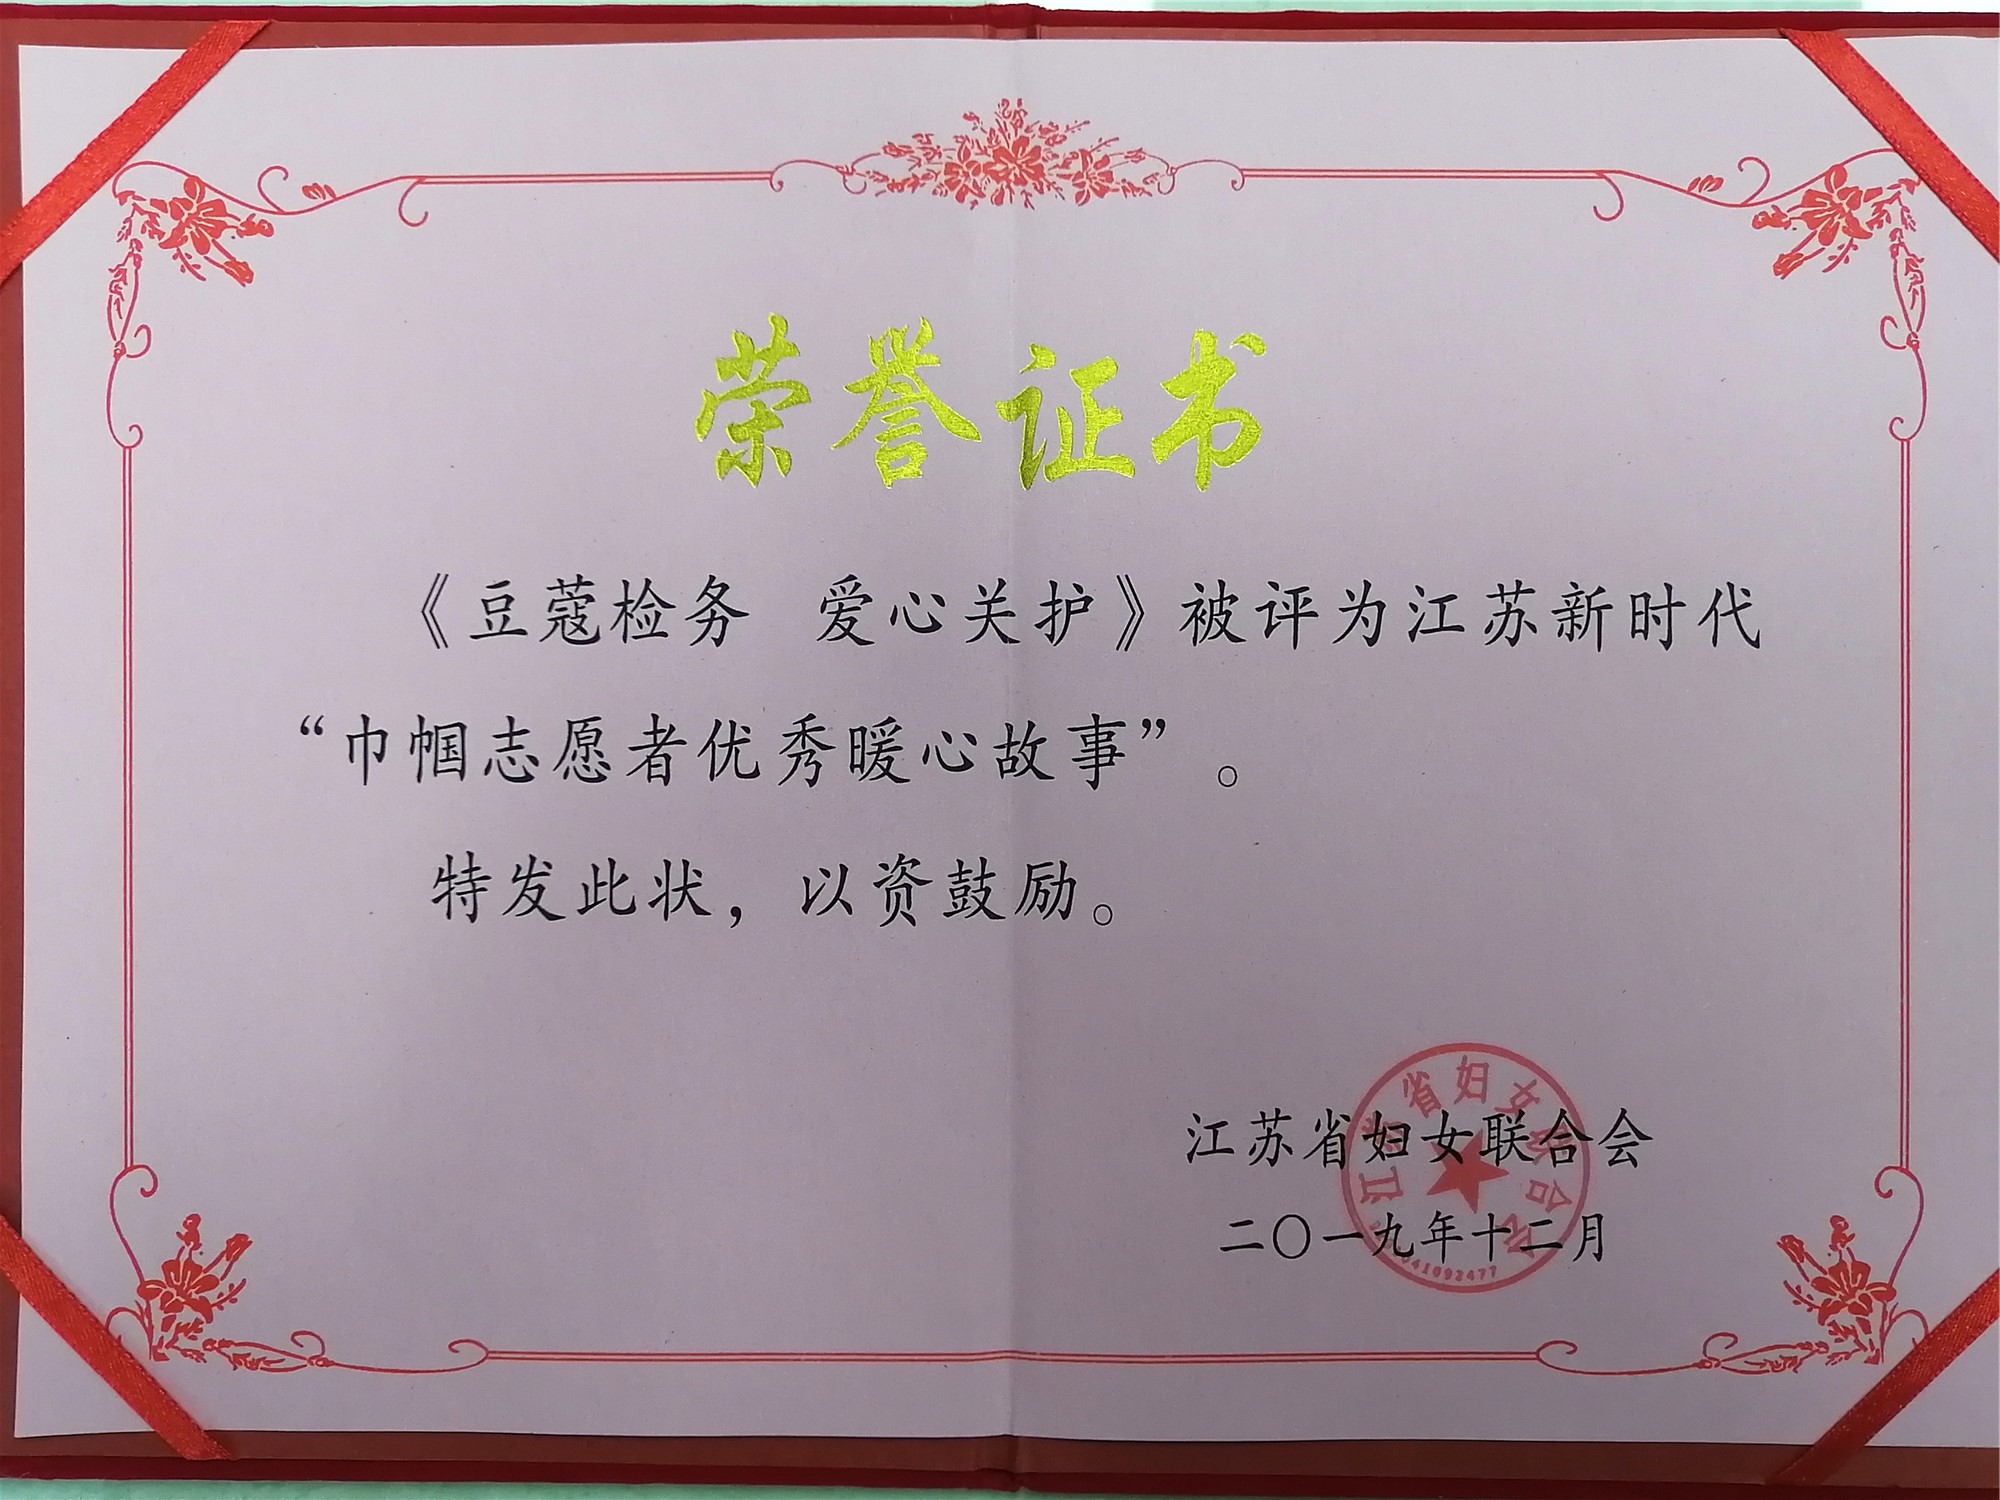 荣誉证书
《豆蔻检务 爱心关护》被评为江苏新时代
“巾帼志愿者优秀暖心故事”。
特发此状，以资鼓励。
江苏省妇女联合会
二〇一九年十二月
江苏省妇女联合会